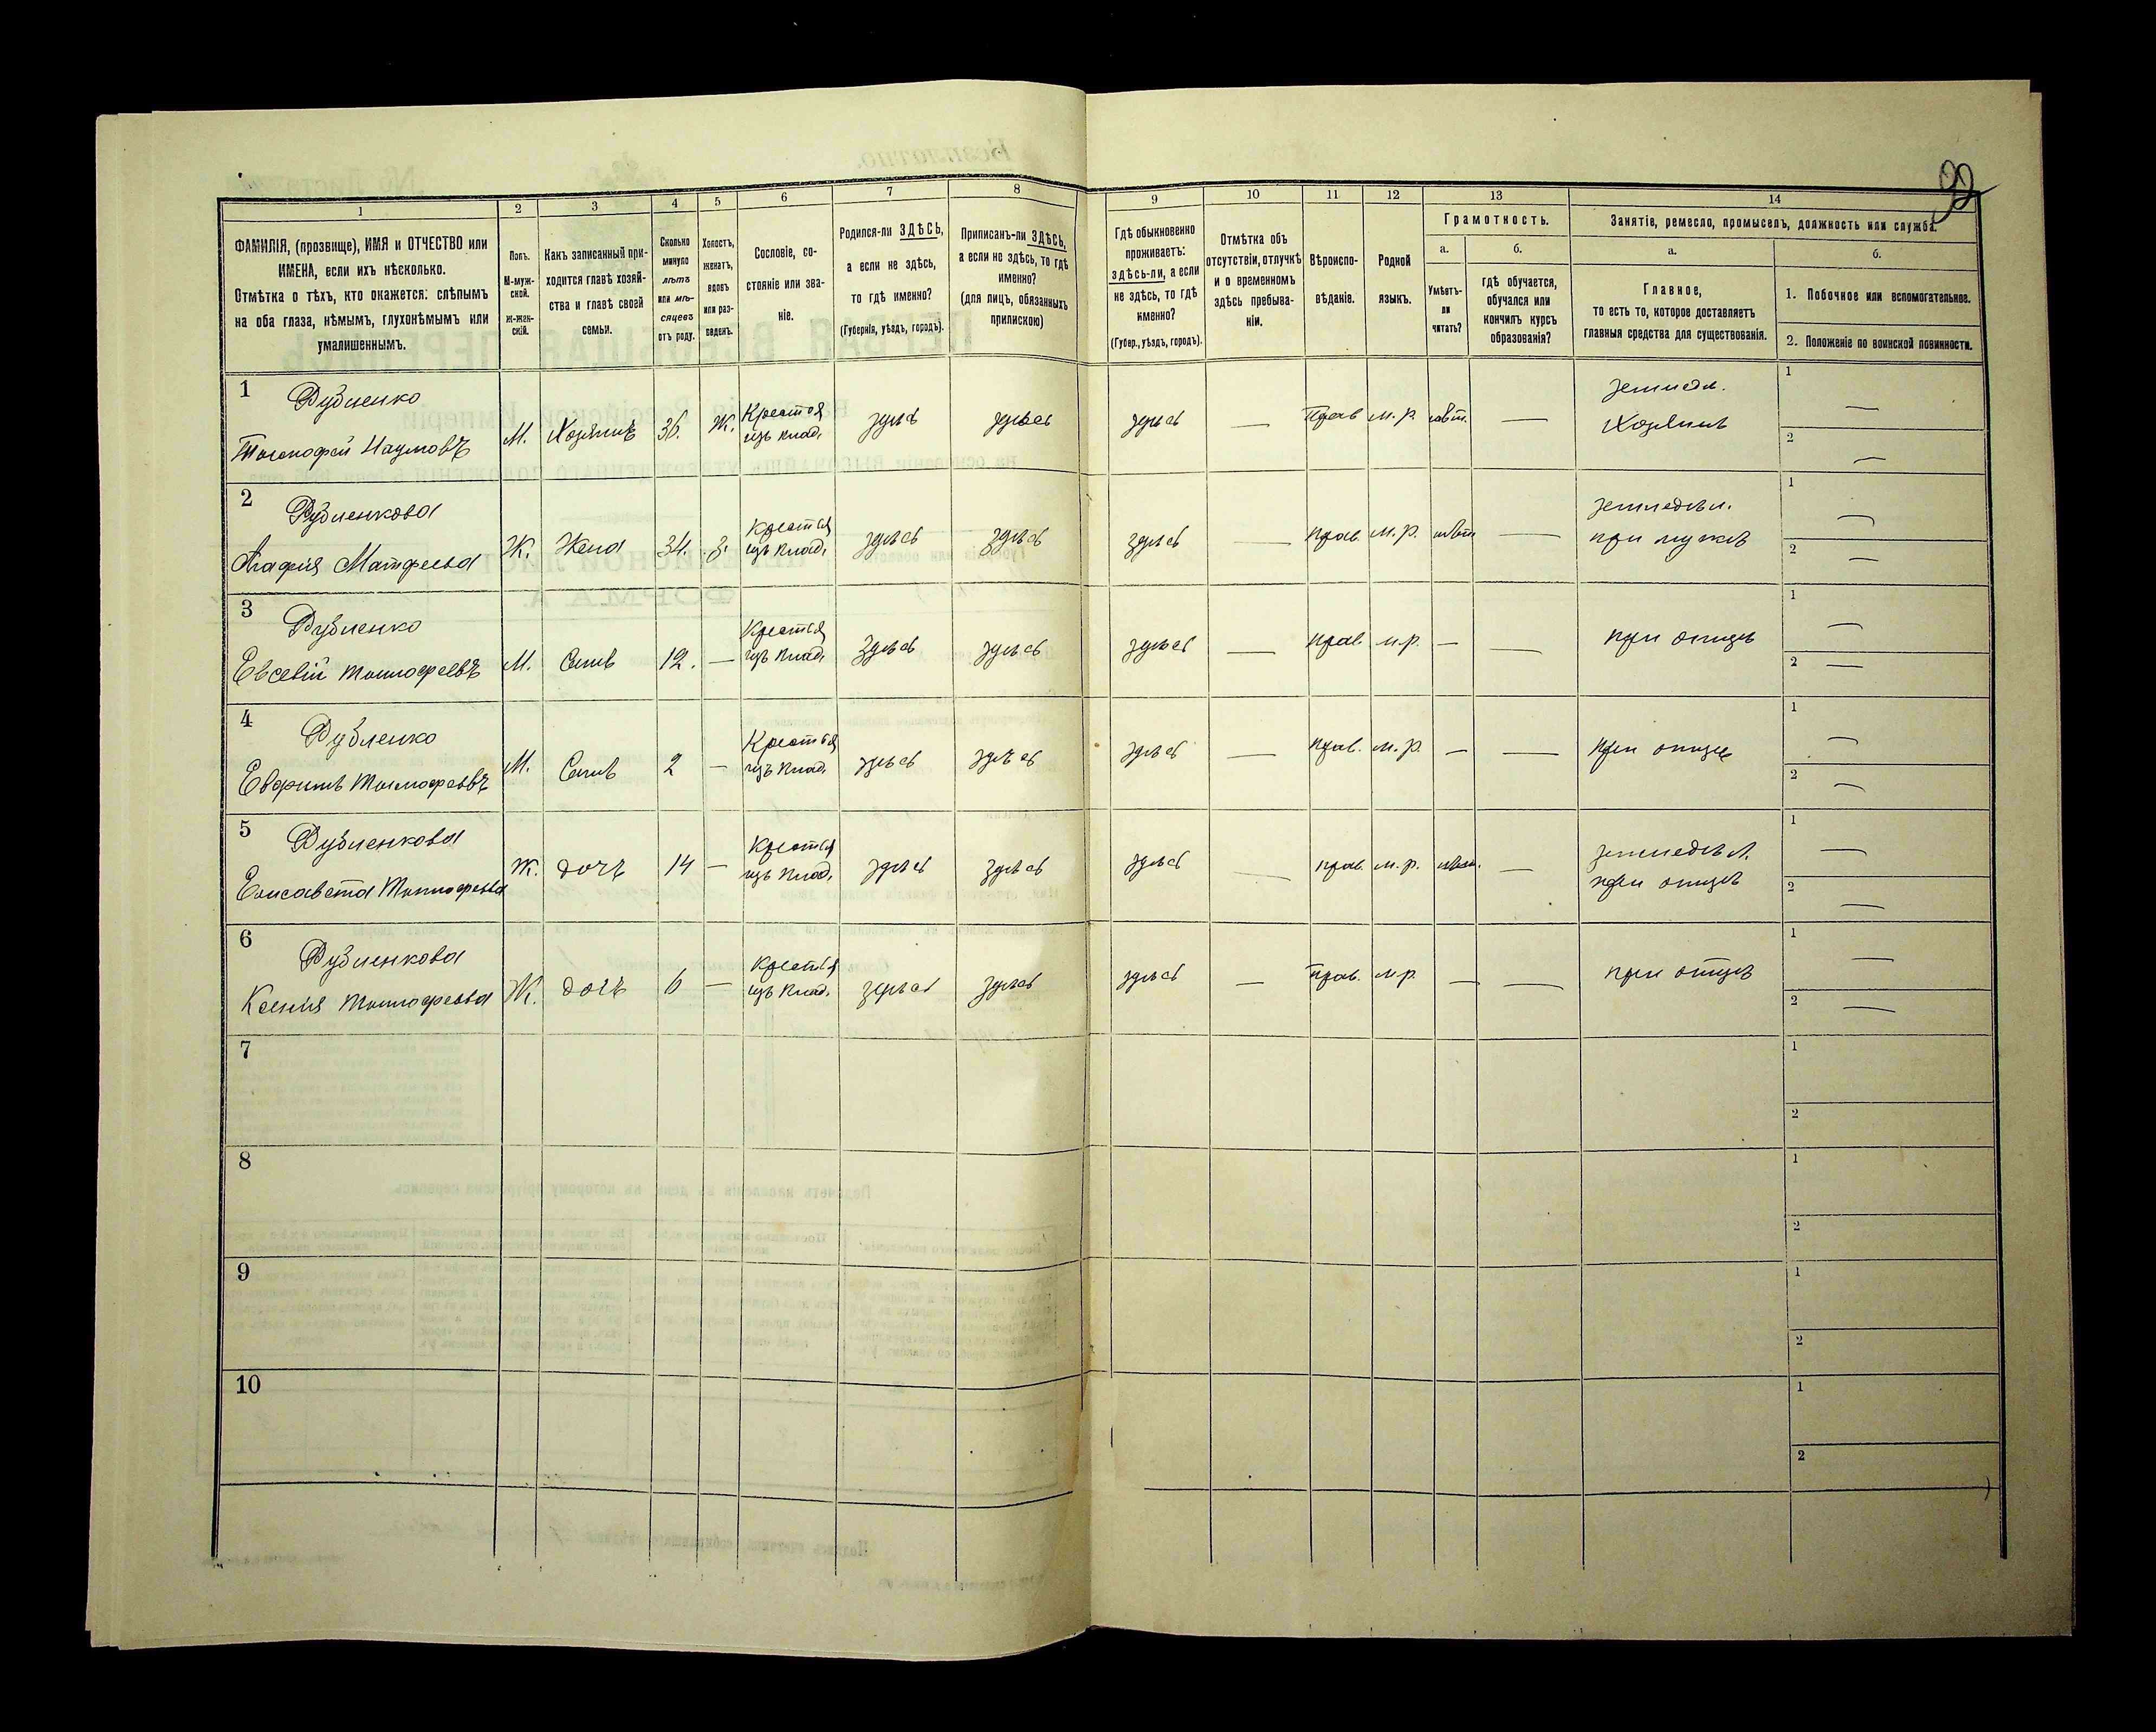 92
1 2 3 4 5 6 7 8 9 10 11 12 13 14
ФАМИЛІЯ, (прозвище), ИМЯ и ОТЧЕСТВО или
ИМЕНА, если ихъ нѣсколько.
Отмѣтка о тѣхъ, кто окажется: слѣпымъ
на оба глаза, нѣмымъ, глухонѣмымъ или
умалишеннымъ.
Полъ.
М-муж-
ской.
Ж-жен-
скій.
Какъ записанный при-
ходится главѣ хозяй-
ства и главѣ своей
семьи.
Сколько
минуло
лѣтъ
или мѣ-
сяцевъ
отъ роду.
Холостъ,
женатъ,
вдовъ
или раз-
веденъ.
Сословіе, со-
стояніе или зва-
ніе.
Родился-ли ЗДѢСЬ,
а если не здѣсь,
то гдѣ именно?
(Губернія, уѣздъ, городъ).
Приписанъ-ли ЗДѢСЬ,
а если не здѣсь, то гдѣ
именно?
(для лицъ, обязанныхъ
припискою)
Гдѣ обыкновенно
проживаетъ:
здѣсь-ли, а если
не здѣсь, то гдѣ
именно?
(Губер., уѣздъ, городъ).
Отмѣтка объ
отсутствіи, отлучкѣ
и о временномъ
здѣсь пребыва-
ніи.
Вѣроиспо-
вѣданіе.
Родной
языкъ.
Грамотность.
а.
Умѣетъ-
ли
читать?
б.
гдѣ обучается,
обучался или
кончилъ курсъ
образованія?
Занятіе, ремесло, промыселъ, должность или служба.
а.
Главное,
то есть то, которое доставляетъ
главныя средства для существованія.
б.
1. Побочное или вспомогательное.
2. Положеніе по воинской повинности.
1 Дубненко
Тимофей Наумовъ М. Хозяинъ 36. Ж. Крестья изъ влад. здѣсь здѣсь здѣсь — Прав м.р. нѣт. — земледѣл. Хозяинъ 1 — 2 —
2 Дубненкова
Агафія Матфеева Ж. Жена 34. З. Крестья изъ влад. здѣсь здѣсь здѣсь — прав м.р. нѣт — земледѣл. при мужѣ 1 — 2 —
3 Дубненко
Евсевій Тимофеевъ М. Сынъ 12. — Крестья изъ влад. здѣсь здѣсь здѣсь — прав. м.р. — — при отцѣ 1 — 2 —
4 Дубненко
Тимофеевъ М. Сынъ 2 — Крестья изъ влад. здѣсь здѣсь здѣсь — прав. м.р. — — при отцѣ 1 — 2 —
5 Дубненкова
Елисавета Тимофеева Ж. дочь 14 — Крестья изъ влад. здѣсь здѣсь здѣсь — прав. м.р. нѣт. — земледѣл. при отцѣ 1 — 2 —
6 Дубненкова
Ксенія Тимофеева Ж. дочь 6 — Крестья изъ влад. здѣсь здѣсь здѣсь — прав. м.р. — — при отцѣ 1 — 2 —
7 1 2
8 1 2
9 1 2
10 1 2